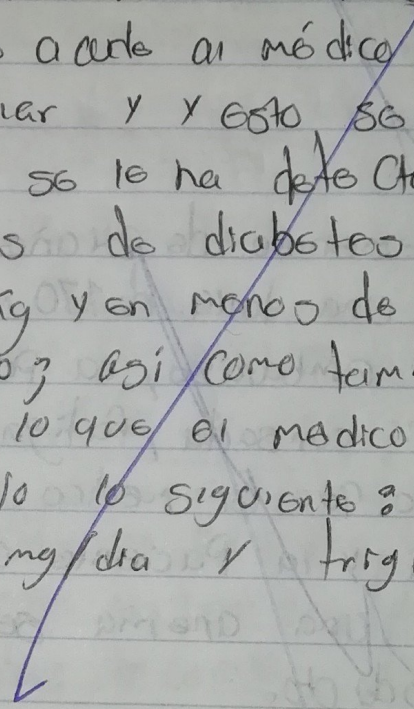 acude al médico
uar y y esto se
se le ha detecta
s de diabetes
ig y en menos de
o; así como tam
lo que el medico
lo lo siguiente:
mg/dia y trig